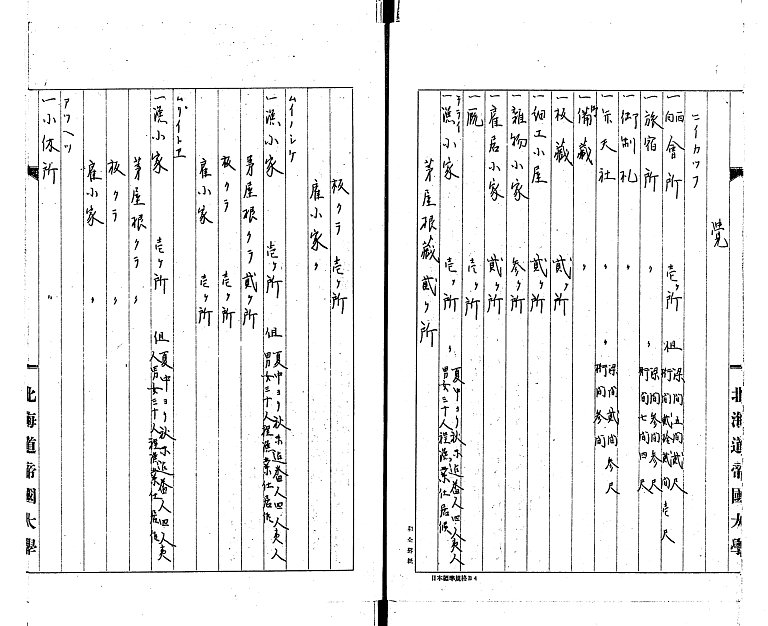 覚
ニイカツフ
一 會所 壱ヶ所 但 梁間五間貳尺 桁間貳拾貳間壱尺
一 旅宿所 〃 梁間参間参尺 桁間七間四尺
一 御制札 〃
一 弁天社 〃 梁間貳間参尺 桁間参間
一 備蔵 〃
一 板蔵 貳ヶ所
一 細工小屋 貳ヶ所
一 雑物小家 参ヶ所
一 雇居小家 貳ヶ所
一 厩 壱ヶ所
一 漁小家 壱ヶ所 〃 夏中ヨリ秋末迄番人四人夷人男女三十人程漁業仕居候
茅屋根蔵 貳ヶ所
日本標準規格B4
北海道帝國大學
板クラ 壱ヶ所
雇小家 〃
ムイノシケ
一 漁小家 壱ヶ所 但 夏中ヨリ秋末迄番人四人夷人男女三十人程漁業仕居候
茅屋根クラ 貳ヶ所
板クラ 壱ヶ所
雇小家 壱ヶ所
一 漁小家 壱ヶ所 但 夏中ヨリ秋末迄番人四人夷人男女三十人程漁業仕居候
茅屋根クラ 〃
板クラ 〃
雇小家 〃
アツヘツ
一 小休所 〃
北海道帝國大學